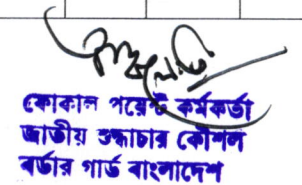 ফোকাল পয়েন্ট কর্মকর্তা
জাতীয় শুদ্ধাচার কৌশল
বর্ডার গার্ড বাংলাদেশ